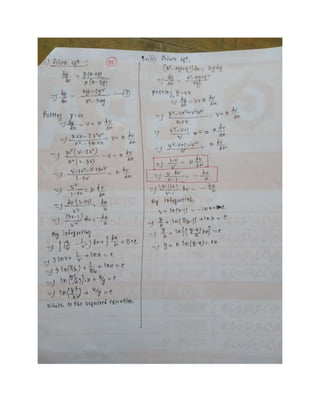 Given eqⁿ :
dy/dx = y(x-2y)/x(x-3y)
=) dy/dx = xy-2y²/x²-3xy
Putting y=vx
=) dy/dx = v+x dv/dx
=) x.vx-2v²x²/x²-3x.vx = v+x dv/dx
=) x²(v-2v²)/x²(1-3v) - v = x dv/dx
=) v-2v²-v+3v²/1-3v = x dv/dx
=) v²/1-3v = x dv/dx
=) dv(1-3v)/v² = dx/x
=) (3v-1)/v² dv = -dx/x
By integrating
=) 3lnv + 1/v + lnx = c
=) 3 ln(y/x) + 1/y/x + lnx = c
=) ln(y³/x³).x + x/y = c
=) ln(y³/x²) + x/y = c
Which is the required equation.
Given eqⁿ,
(x²-xy+y²)dx = xydy
=) dy/dx = x²-xy+y²/xy
Putting y=vx
=) dy/dx = v+x dv/dx
=) x²-vx²+v²x²/x.vx = v+x dv/dx
=) v²-v+1/v = v+x dv/dx
=) 1-v/v = x dv/dx
=) v dv/v-1 = -dx/x
By integrating,
v+ln(v-1) = -lnx+c
=) y/x + ln(y/x-1) + lnx = c
=) y/x + ln{(y-x/x)x} = c
=) y+x ln(y-x) = cx